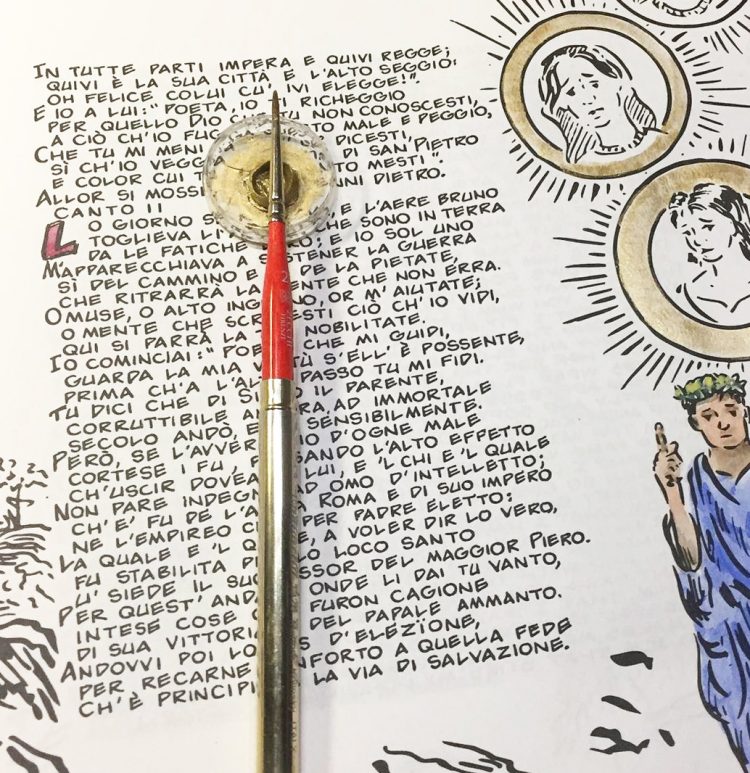 IN TUTTE PARTI IMPERA E QUIVI REGGE;
QUIVI È LA SUA CITTÀ E L'ALTO SEGGIO:
OH FELICE COLUI CU' IVI ELEGGE!".
E IO A LUI: "POETA, IO TI RICHEGGIO
PER QUELLO DIO CHE TU NON CONOSCESTI,
A CIÒ CH'IO MALE E PEGGIO,
CHE TU MI MENI DICESTI,
SÌ CH'IO DI SAN PIETRO
E COLOR CUI MESTI".
ALLOR SI DIETRO.
CANTO II
LO GIORNO E L'AERE BRUNO
TOGLIEVA CHE SONO IN TERRA
DA LE FATICHE LORO; E IO SOL UNO
M'APPARECCHIAVA A SOSTENER LA GUERRA
SÌ DEL CAMMINO E SÌ DE LA PIETATE,
CHE RITRARRÀ LA MENTE CHE NON ERRA.
O MUSE, O ALTO INGEGNO, OR M'AIUTATE;
O MENTE CHE SCRIVESTI CIÒ CH'IO VIDI,
QUI SI PARRÀ LA TUA NOBILITATE.
IO COMINCIAI: "POETA CHE MI GUIDI,
GUARDA LA MIA VIRTÙ S'ELL' È POSSENTE,
PRIMA CH'A L'ALTO PASSO TU MI FIDI.
TU DICI CHE DI IL PARENTE,
CORRUTTIBILE ANCORA, AD IMMORTALE
SECOLO ANDÒ, E SENSIBILMENTE.
PERÒ, SE L'AVVERSARIO D'OGNE MALE
CORTESE I FU, PENSANDO L'ALTO EFFETTO
CH'USCIR DOVEA LUI, E 'L CHI E 'L QUALE
NON PARE INDEGNO AD OMO D'INTELLETTO;
CH'E' FU DE L'ALMA ROMA E DI SUO IMPERO
NE L'EMPIREO PER PADRE ELETTO:
LA QUALE E 'L QUALE, A VOLER DIR LO VERO,
FU STABILITA LO LOCO SANTO
U' SIEDE IL SUCCESSOR DEL MAGGIOR PIERO.
PER QUEST' ANDATA ONDE LI DAI TU VANTO,
INTESE COSE FURON CAGIONE
DI SUA VITTORIA DEL PAPALE AMMANTO.
ANDOVVI POI LO D'ELEZÏONE,
PER RECARNE CONFORTO A QUELLA FEDE
CH'È PRINCIPIO LA VIA DI SALVAZIONE.
2